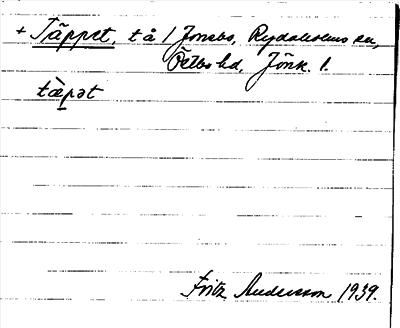 + Täppet, t å 1 Jonsbo, Rydaholms sn,
Östbo hd, Jönk. l.
tæ̀pət
Fritz Andersson 1939.